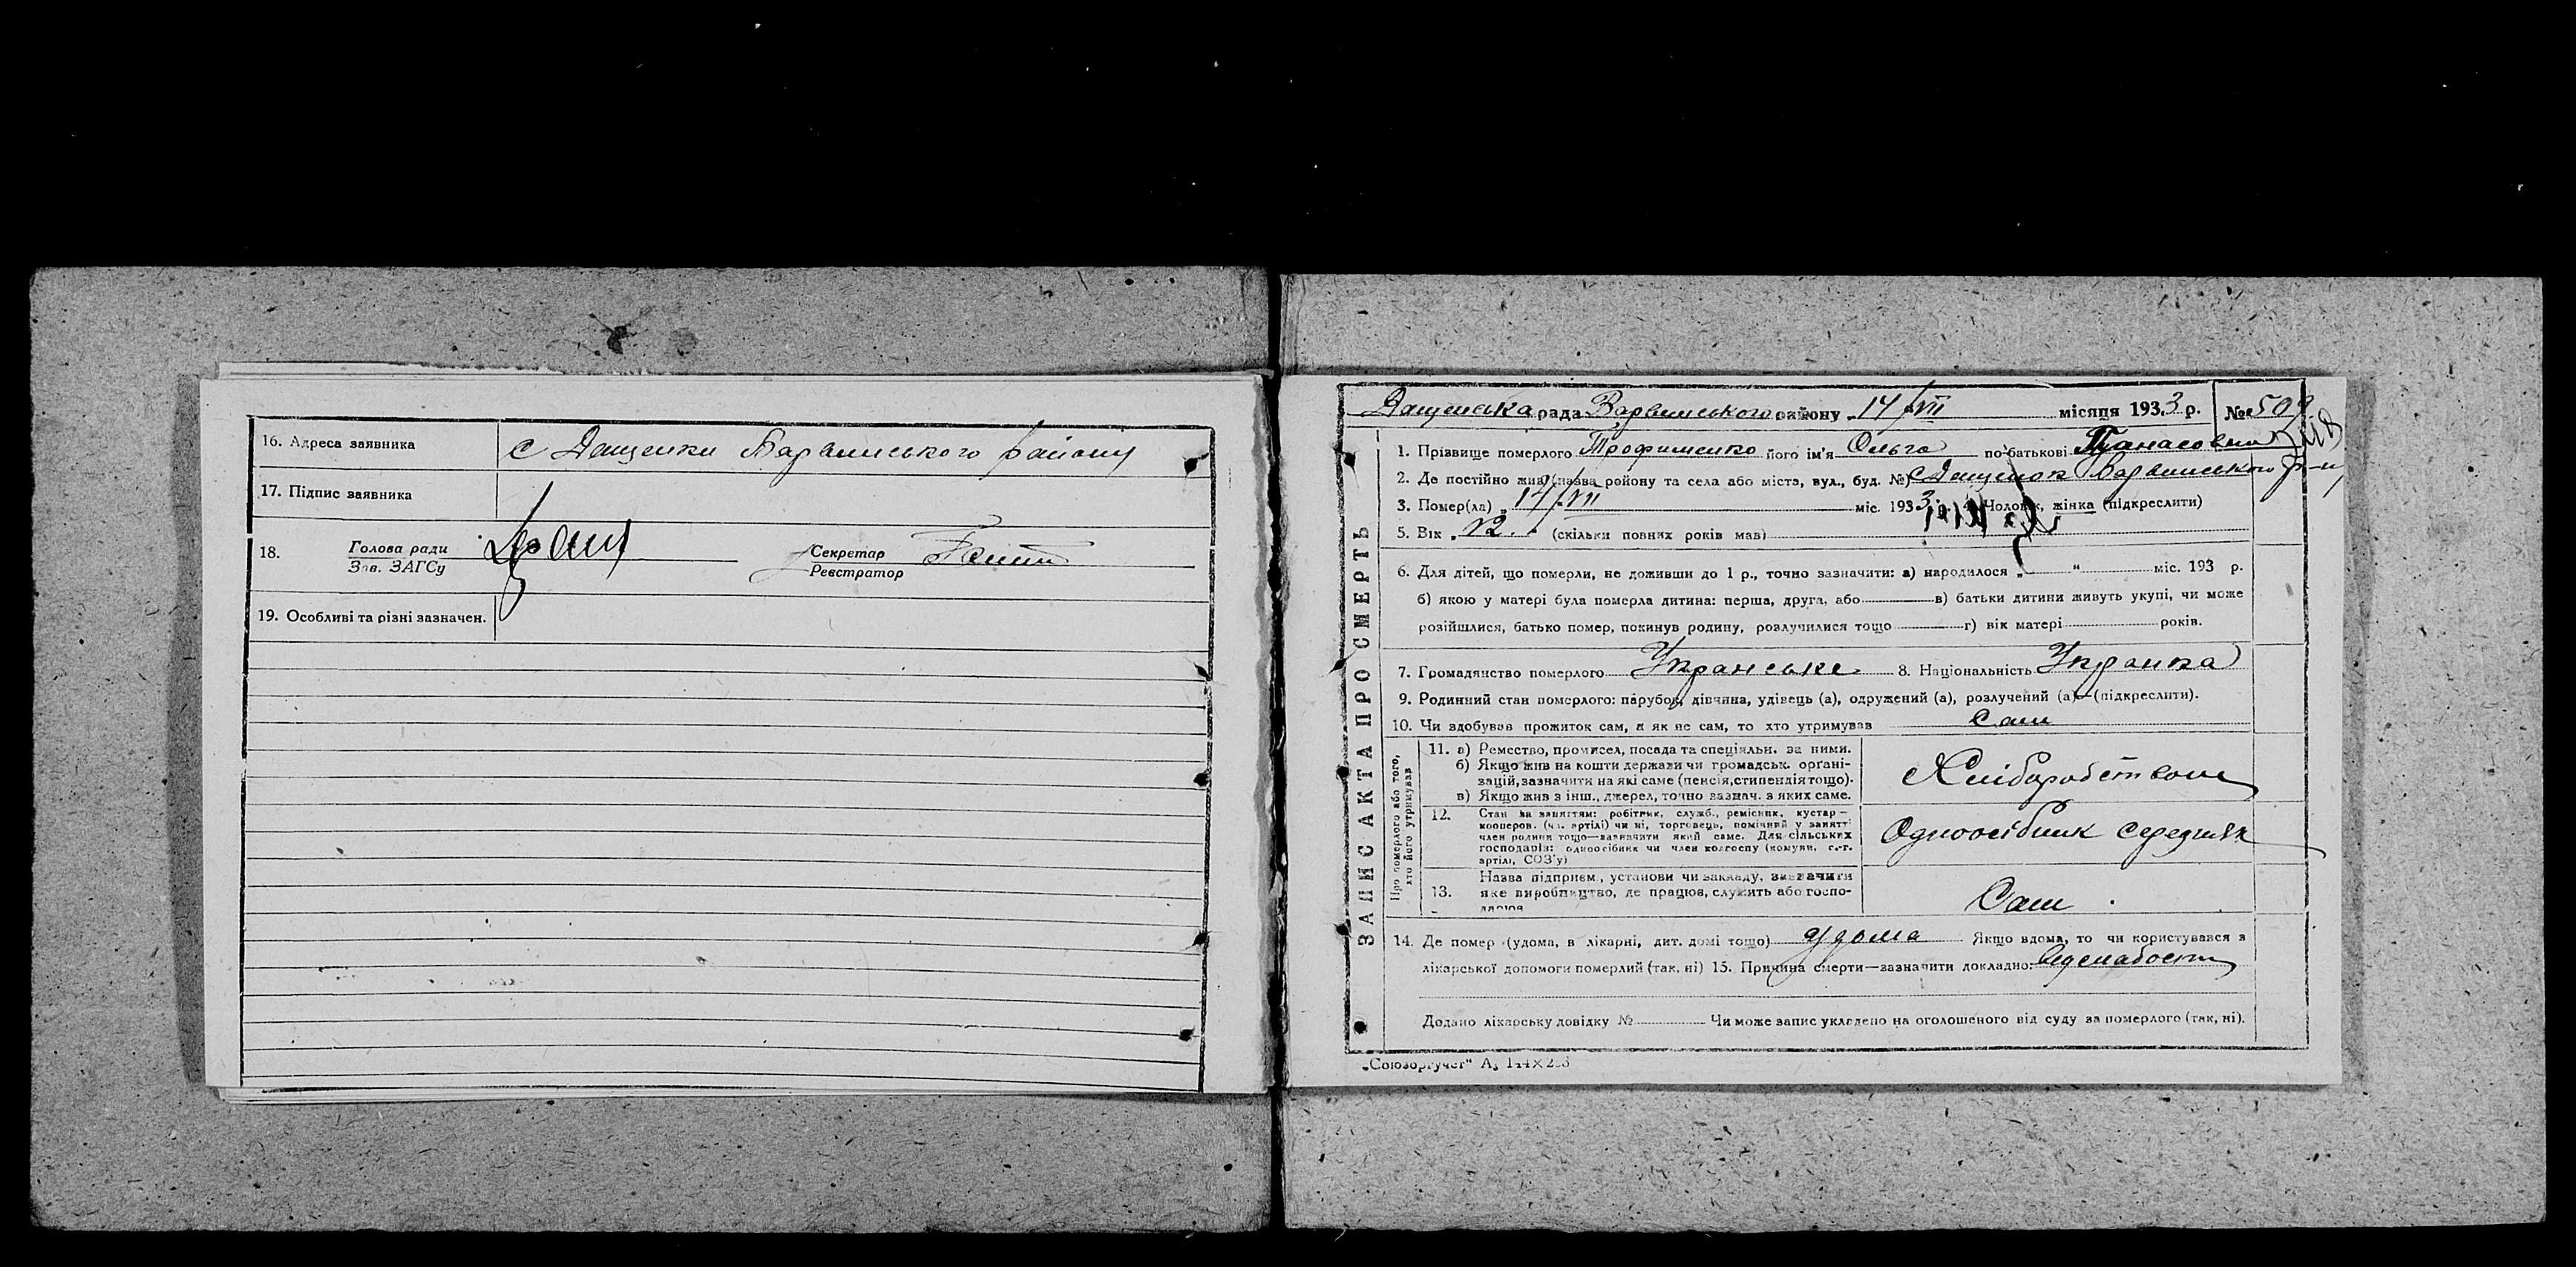 16. Адреса заявника с Дащенки Варвинського району
17. Підпис заявника
18. Голова ради
Зав. ЗАГСу
Секретар
Реєстратор
19. Особливі та різні зазначен.
ЗАПИС АКТА ПРО СМЕРТЬ
Дащенська рада Варвинського району 14/VII місяця 1933 р. №
1. Прізвище померлого Трофименко його ім'я Ольга по-батькові Панасовна
2. Де постійно жив (назва району та села або міста, вул., буд. №) с Дащенок Варвинського р-н
3. Помер(ла) „ 14/VII міс. 1933 Чоловік, жінка (підкреслити)
5. Вік „ (скільки повних років мав)
6. Для дітей, що померли, не доживши до 1 р., точно зазначити: а) народилося „ “ міс. 193 р.
б) якою у матері була померла дитина: перша, друга, або в) батьки дитини живуть укупі, чи може
розійшлися, батько помер, покинув родину, розлучилися тощо г) вік матері років.
7. Громадянство померлого Укранське 8. Національність Украинка
9. Родинний стан померлого: парубок, дівчина, удівець (а), одружений (а), розлучений (а)—(підкреслити).
10. Чи здобував прожиток сам, а як не сам, то хто утримував Сам
Про померлого або того, хто його утримував
11. а) Ремество, промисел, посада та спеціяльн. за ними.
б) Якщо жив на кошти держави чи громадськ. органі-
зацій, зазначити на які саме (пенсія, стипендія тощо).
в) Якщо жив з інш., джерел, точно зазнач. з яких саме.
Хліборобством
12. Стан за заняттям: робітник, служб., ремісник, кустар—
кооперов. (чл. артілі) чи ні, торговець, помічний у занятті
член родини тощо—зазначити який саме. Для сільських
господарів: одноосібник чи член колгоспу (комуни, с.-г.
артілі, СОЗ'у)
Одноосібник середняк
13. Назва підприєм., установи чи закладу, зазначити
яке виробництво, де працює, служить або госпо-
дарює
Сам
14. Де помер (удома, в лікарні, дит. домі тощо) удома Якщо вдома, то чи користувався з
лікарської допомоги померлий (так, ні) 15. Причина смерти—зазначити докладно:
Додано лікарську довідку № Чи може запис укладено на оголошеного від суду за померлого (так, ні).
„Союзоргучет“